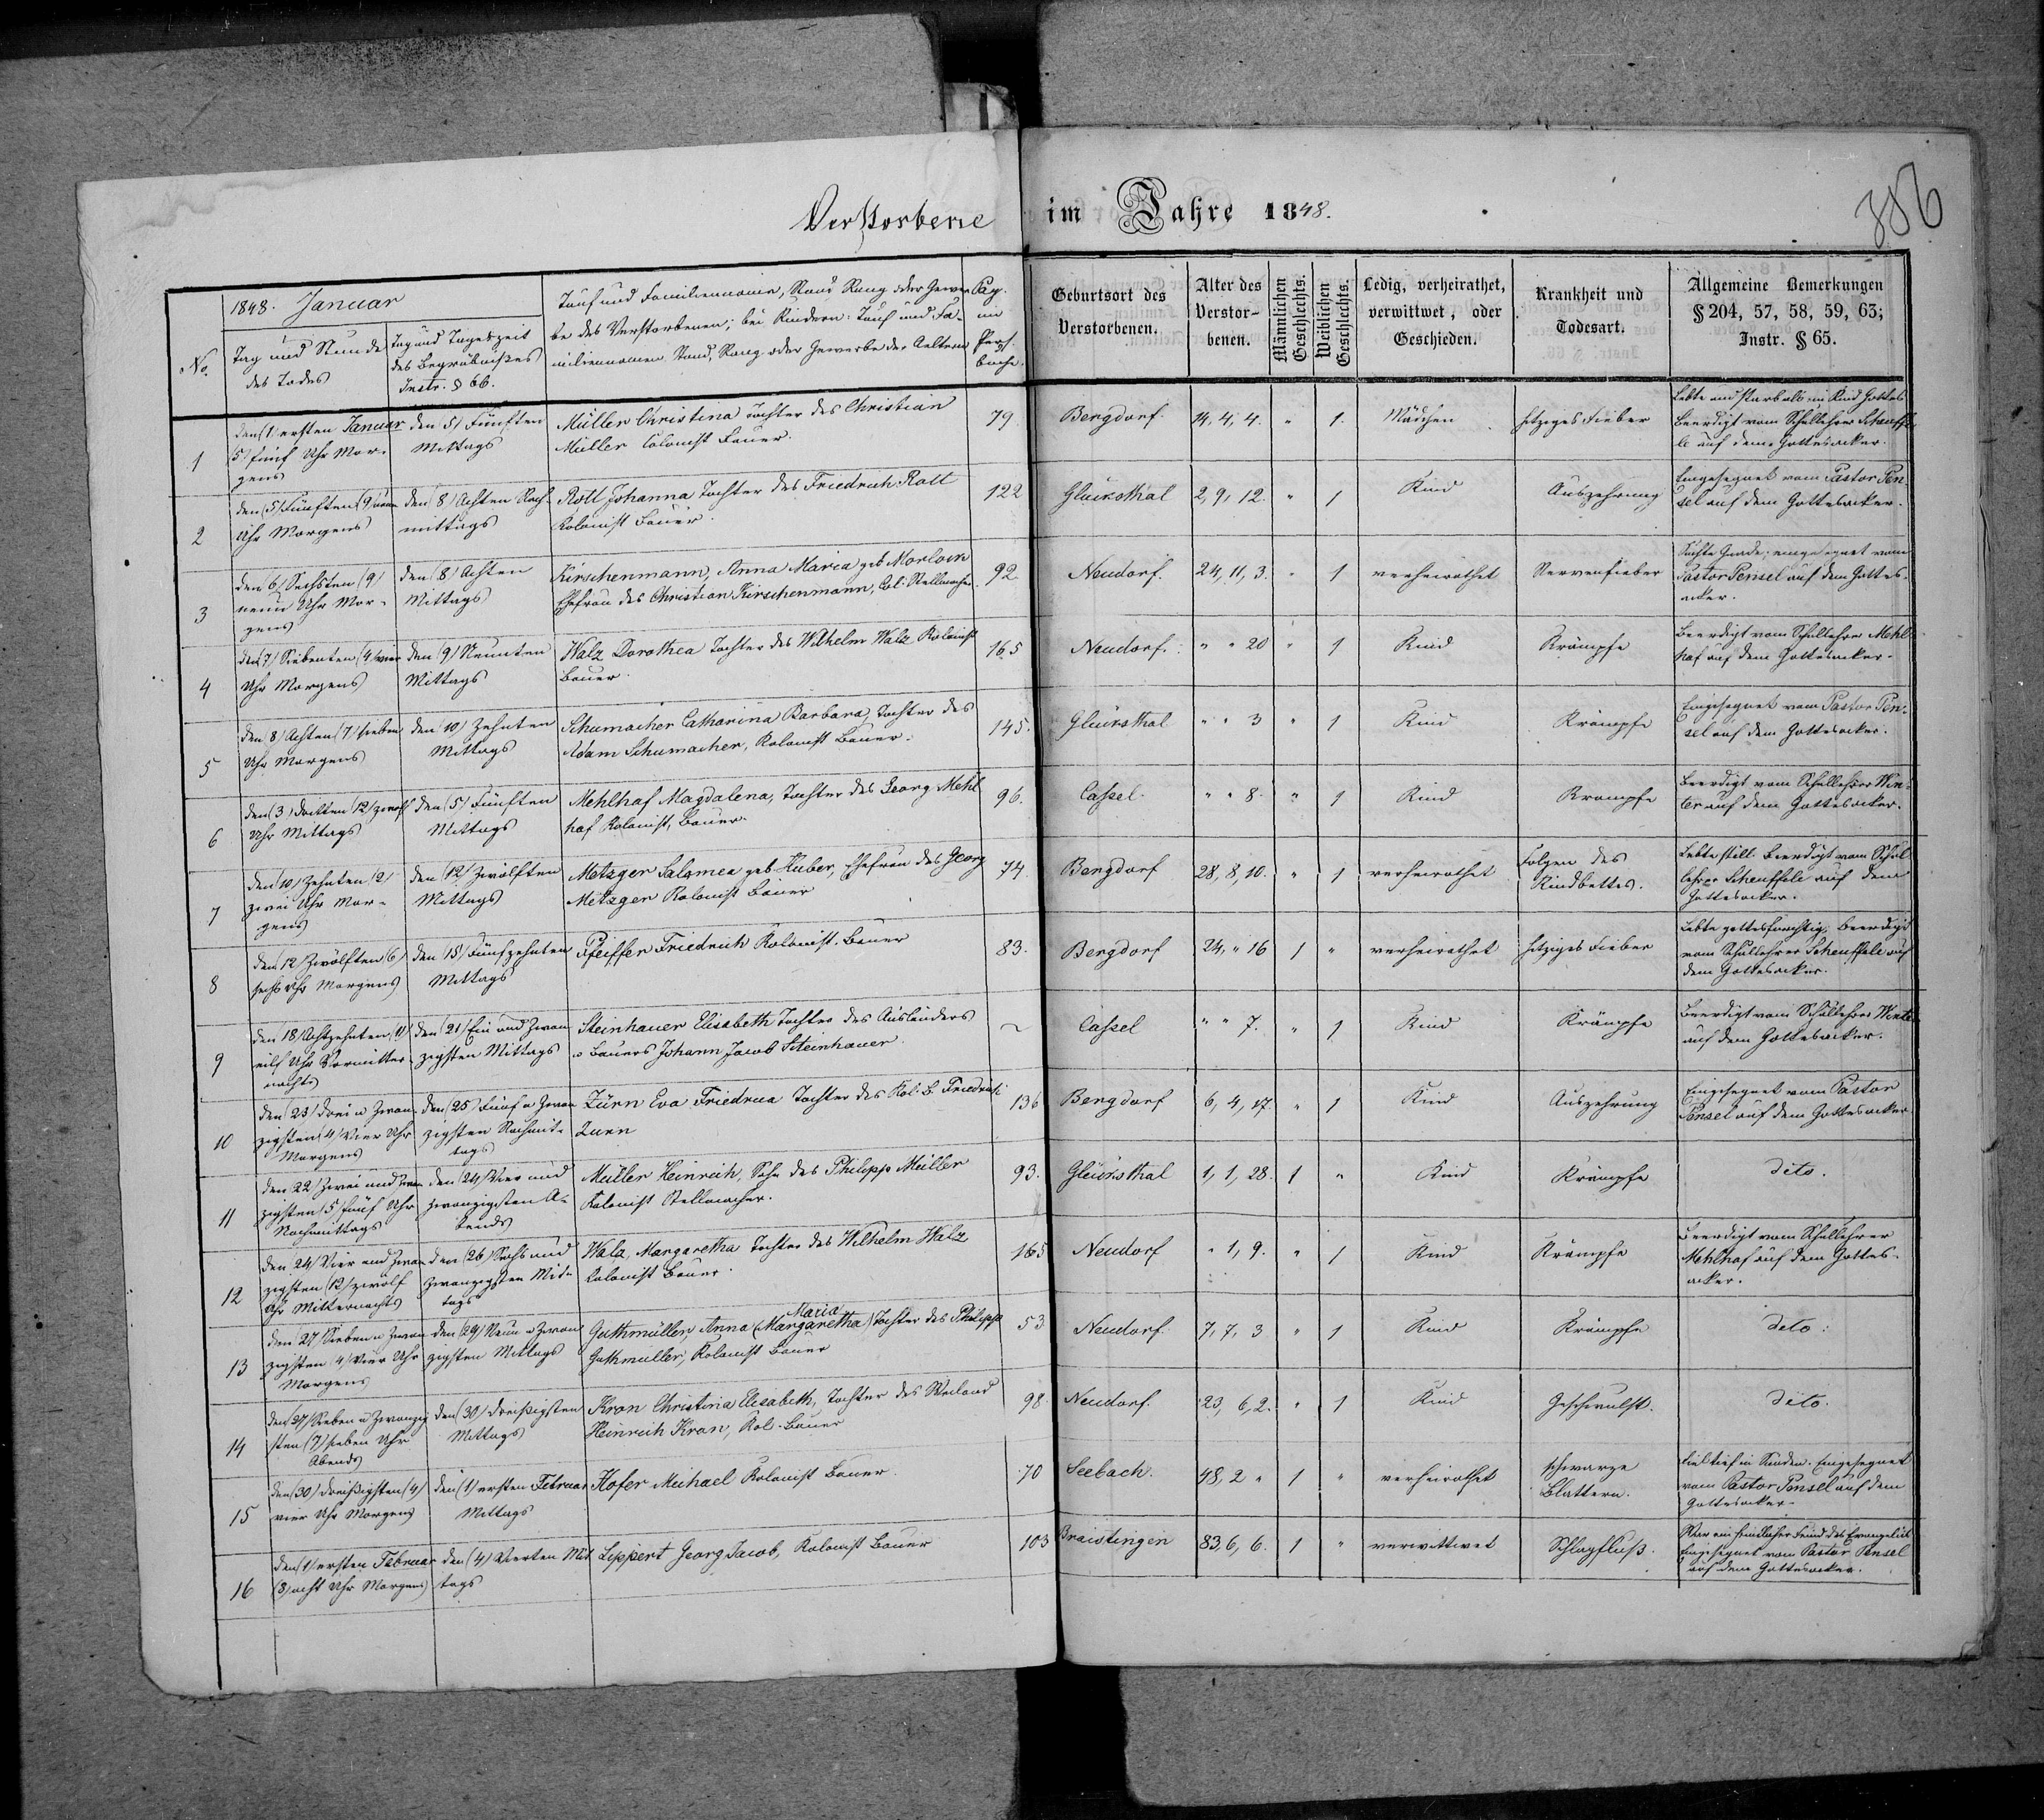 Verstorbene im Jahre 1848.
386
1848. Januar
No.
Tag und Stunde
des Todes
Tag und Tageszeit
des Begräbnißes
Instr. § 66.
Tauf und Familienname, Stand Rang oder Gewer
be des Verstorbenen; bei Kindern: Tauf und Fa-
miliennamen Stand, Rang oder Gewerbe der Aeltern
Pag.
im
Pers.
buche.
Geburtsort des
Verstorbenen.
Alter des
Verstor-
benen.
Männlichen
Geschlechts.
Weiblichen
Geschlechts.
Ledig, verheirathet,
verwittwet, oder
Geschieden.
Krankheit und
Todesart.
Allgemeine Bemerkungen
§ 204, 57, 58, 59, 63;
Instr. § 65.
1
den (1) ersten Januar
(5) fünf Uhr Mor-
gens
den (5) Fünften
Mittags
Müller Christina Tochter des Christian
Müller Colonist Bauer.
79
Bergdorf.
14, 4, 4.
"
1.
Mädchen
hitziges Fieber
Lebte und starb als ein Kind Gottes
Beerdigt vom Schullehrer Scheuffe
le auf dem Gottesacker.
2
den (5) Fünften (9) neun
Uhr Morgens
den (8) Achten Nach-
mittags
Rott Johanna Tochter des Friedrich Rott
Kolonist Bauer.
122
Glücksthal
2, 9, 12.
"
1
Kind
Auszehrung
Eingesegnet vom Pastor Pen-
sel auf dem Gottesacker.
3
den (6) Sechsten (9)
neun Uhr Mor-
gens
den (8) Achten
Mittags
Kirschenmann, Anna Maria geb Morlock
Ehefrau des Christian Kirschenmann, Col. Stellmacher.
92
Neudorf.
24, 11, 3.
"
1
verheirathet
Nervenfieber
Suchte Gnade; eingesegnet vom
Pastor Pensel auf dem Gottes-
acker.
4
den (7) Siebenten (4) vier
Uhr Morgens
den (9) Neunten
Mittags
Walz Dorothea Tochter des Wilhelm Walz Kolonist
Bauer.
165
Neudorf.
" " 20
"
1
Kind
Krämpfe
Beerdigt vom Schullehrer Mehl-
haf auf dem Gottesacker.
5
den (8) Achten (7) sieben
Uhr Morgens
den (10) Zehnten
Mittags
Schumacher Catharina Barbara, Tochter des
Adam Schumacher, Kolonist Bauer.
145.
Glücksthal
" " 3
"
1
Kind
Krämpfe
Eingesegnet vom Pastor Pen-
sel auf dem Gottesacker.
6
den (3) dritten (12) zwölf
Uhr Mittags
den (5) Fünften
Mittags
Mehlhaf Magdalena, Tochter des Georg Mehl
haf Kolonist, Bauer.
96.
Cassel.
" " 8.
"
1
Kind
Krämpfe
Beerdigt vom Schullehrer Win-
ler auf dem Gottesacker.
7
den (10) Zehnten (2)
zwei Uhr Mor-
gens
den (12) Zwölften
Mittags
Metzger Salomea geb Huber, Ehefrau des Georg
Metzger Kolonist Bauer
74.
Bergdorf
28, 8, 10.
"
1
verheirathet
Folgen des
Kindbettes.
Lebte still. Beerdigt vom Schul
lehrer Scheuffele auf dem
Gottesacker.
8
den (12) Zwölften (6)
sechs Uhr Morgens
den (15) Fünfzehnten
Mittags
Pfeiffer Friedrich Kolonist. Bauer
83.
Bergdorf
24, " 16
1
"
verheirathet
hitziges Fieber
Lebte gottesfürchtig, Beerdigt
vom Schullehrer Scheuffele auf
dem Gottesacker.
9
den (18) Achtzehnten (11)
eilf Uhr Vormitter
nachts
den (21) Ein und Zwan
zigsten Mittags
Steinhauer Elisabeth Tochter des Ausländers
u Bauers Johann Jacob Steinhauer.
~
Cassel
" " 7.
"
1
Kind
Krämpfe
Beerdigt vom Schullehrer
auf dem Gottesacker.
10
den (23) Drei u Zwan-
zigsten (4) Vier Uhr
Morgens
den (25) Fünf u Zwan
zigsten Nachmit-
tags
Zürn Eva Friedrica Tochter des Kol. B. Friedrich
Zürn
136
Bergdorf
6, 4, 17.
"
1
Kind
Auszehrung
Eingesegnet vom Pastor
Pensel auf dem Gottesacker
11
den (22) Zwei und Zwan
zigsten (5) fünf Uhr
Nachmittags
den (24) Vier und
zwanzigsten A-
bends
Müller Heinrich, Sohn des Philipp Müller
Kolonist Stellmacher.
93.
Glücksthal
1, 1, 28.
1
"
Kind
Krämpfe
dito.
12
den 24) Vier und Zwan
zigsten (12) zwölf
Uhr Mitternachts
den (26) Sechs und
Zwanzigsten Mit-
tags
Walz, Margaretha Tochter des Wilhelm Walz
Kolonist Bauer.
165
Neudorf
" 1, 9.
"
1
Kind
Krämpfe
Beerdigt vom Schullehrer
Mehlhaf auf dem Gottes-
acker.
13
den 27) Sieben u Zwan
zigsten 4) Vier Uhr
Morgens
den (29) Neun u Zwan
zigsten Mittags
Maria
Guthmüller, Anna (Margaretha) Tochter des Philipp
Guthmüller, Kolonist Bauer
53
Neudorf.
7, 7, 3
"
1
Kind
Krämpfe
dito.
14
den (27) Sieben u Zwanzig
sten (7) sieben Uhr
Abends
den (30) Dreißigsten
Mittags
Kron Christina Elisabeth, Tochter des Weiland
Heinrich Kron, Kol. Bauer
98.
Neudorf.
23, 6, 2.
"
1
Kind
Geschwulst.
dito.
15
den (30) Dreißigsten (4)
vier Uhr Morgens
den (1) ersten Februar
Mittags
Hofer Michael Kolonist Bauer.
70
Seebach.
48, 2 "
1
"
verheirathet
schwarze
Blattern.
Fiel tief in Sünden. Eingesegnet
vom Pastor Pensel auf dem
Gottesacker.
16
den (1) ersten Februar
(8) acht Uhr Morgens
den (4) Vierten Mit
tags
Lippert Georg Jacob, Kolonist Bauer
103
Braistingen
83, 6, 6.
1
"
verwittwet
Schlagfluß.
War ein feindlicher Feind des Evangelii
Eingesegnet vom Pastor Pensel
auf dem Gottesacker.